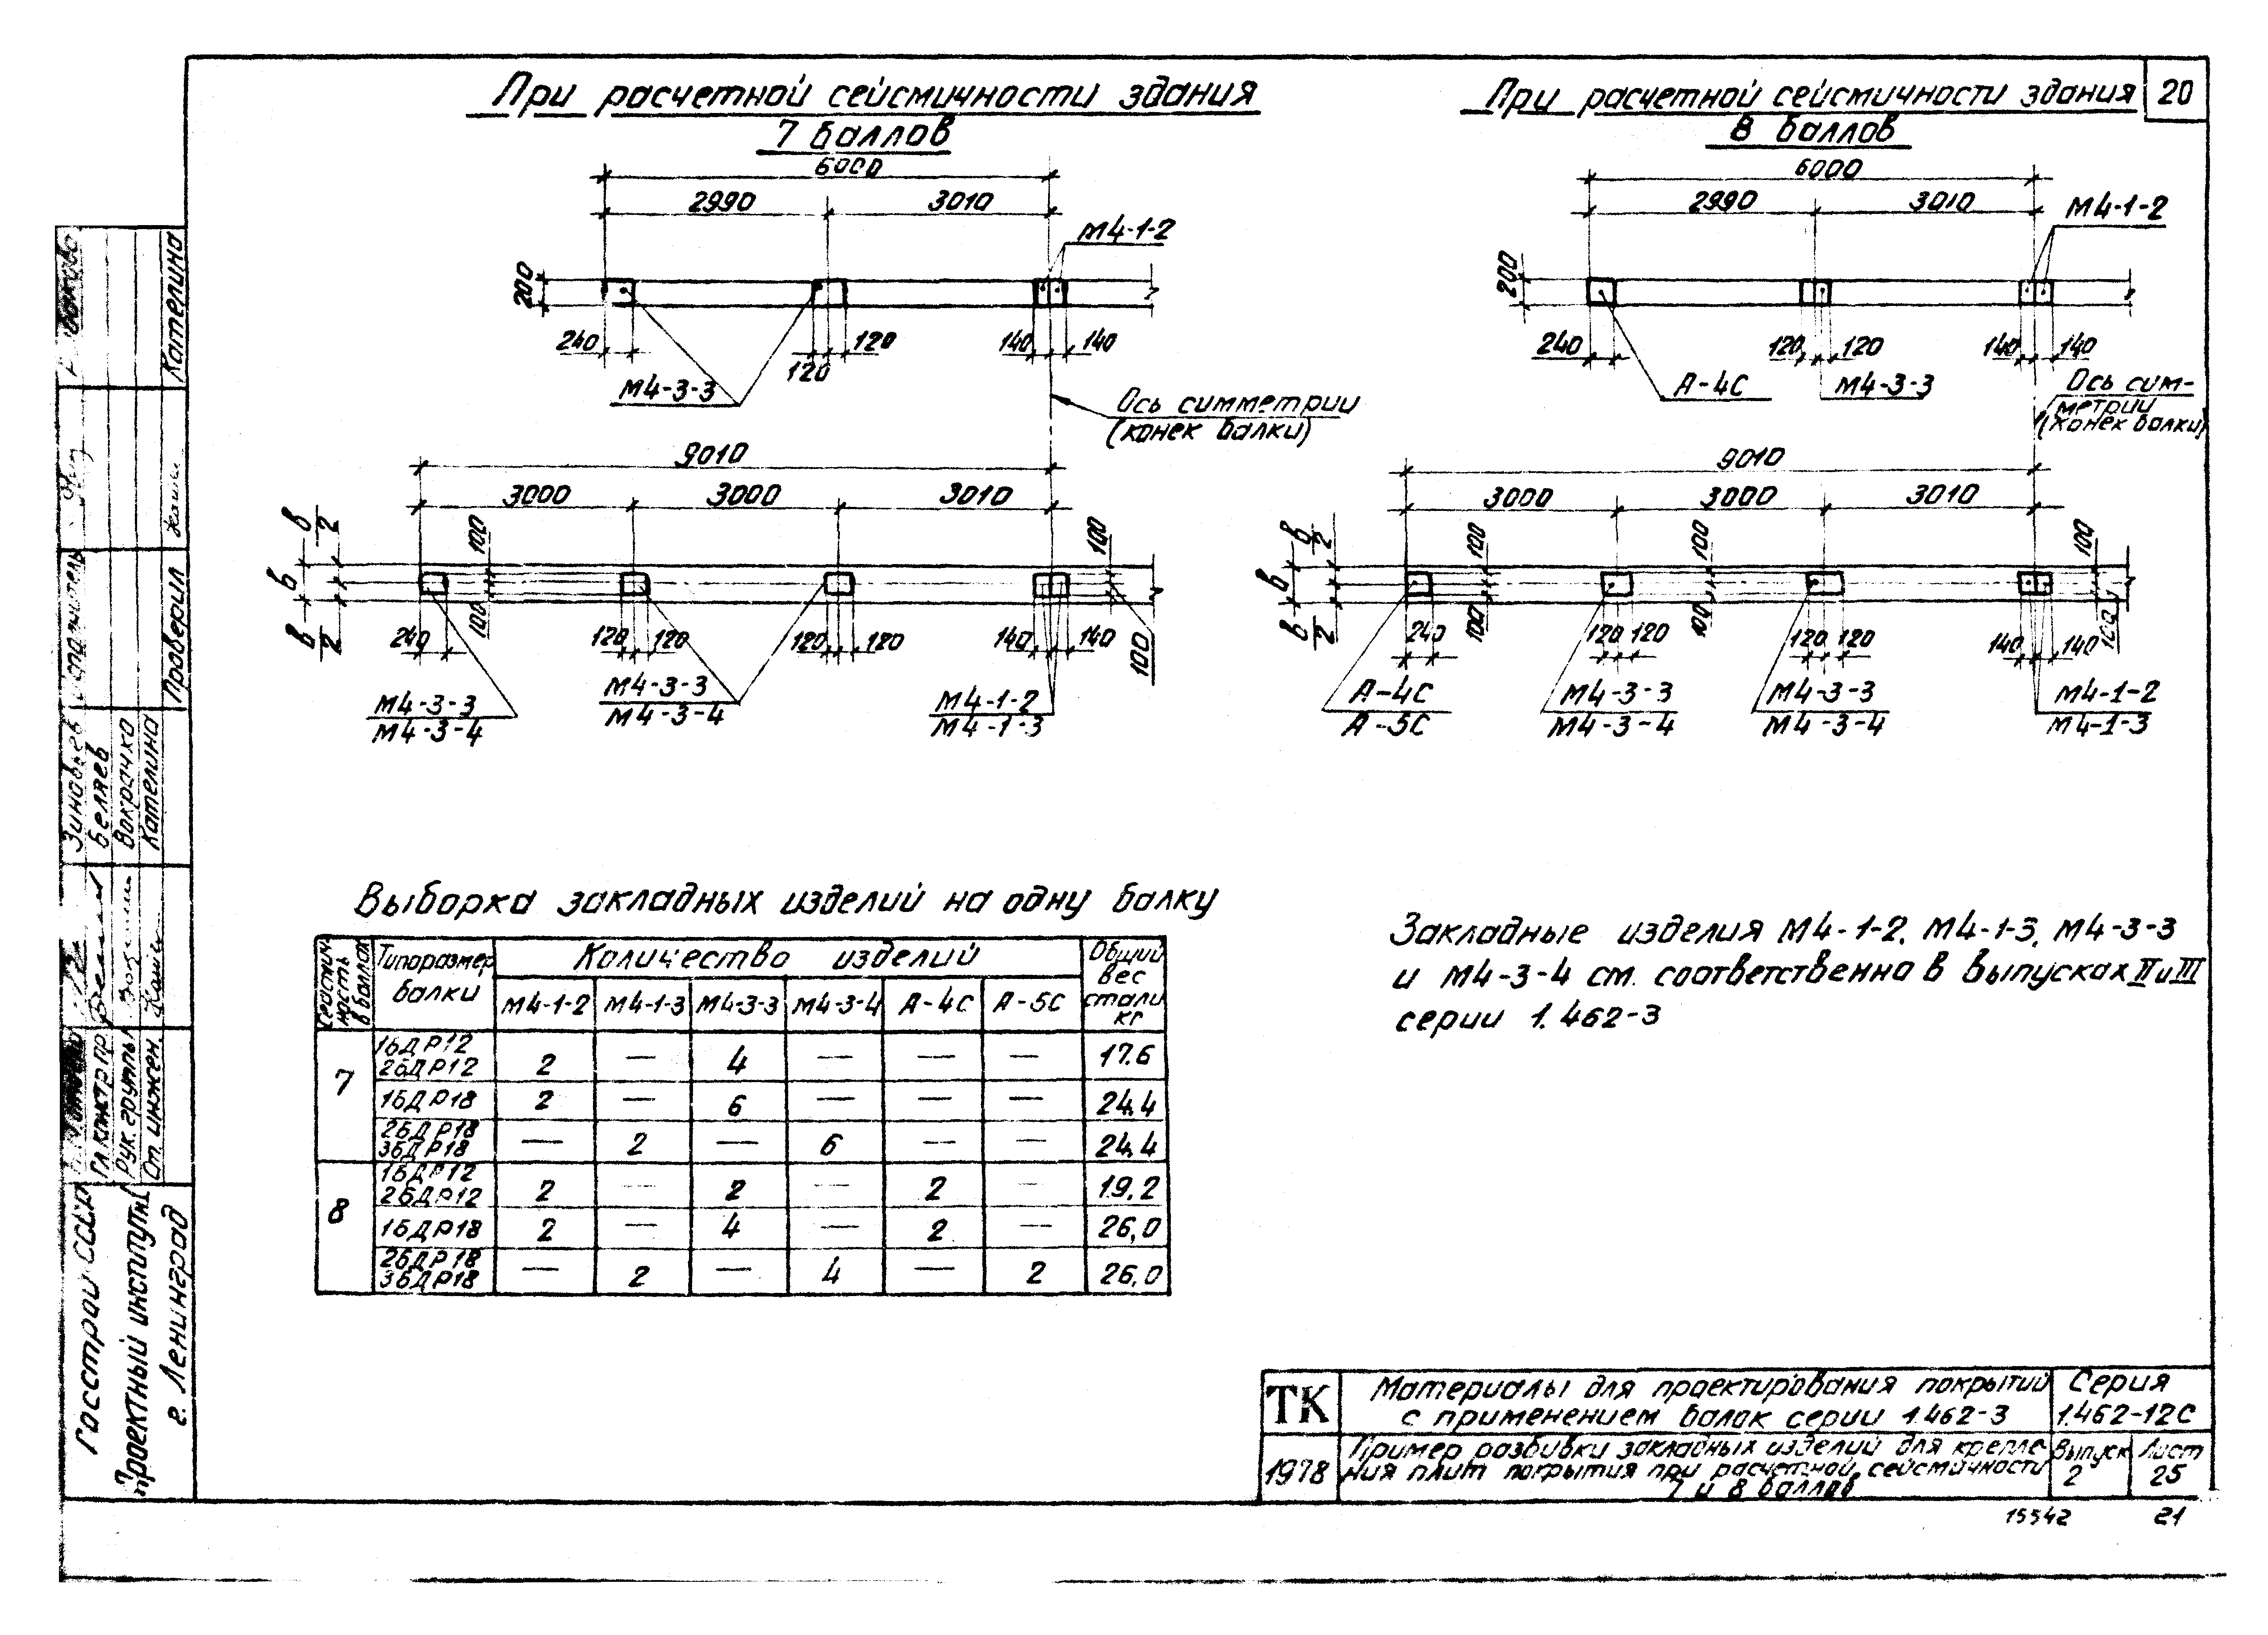 При расчетной сейсмичности здания
7 баллов
6000
2990 3010
М4-1-2
200
240 120 120 140 140
М4-3-3
Ось симметрии
(конек балки)
9010
3000 3000 3010
в/2 в в/2
100 100 100 100
240 120 120 120 120 140 140
М4-3-3
М4-3-4
М4-3-3
М4-3-4
М4-1-2
М4-1-3
При расчетной сейсмичности здания
8 баллов
20
6000
2990 3010
М4-1-2
200
240 120 120 140 140
А-4С М4-3-3
Ось сим-
метрии
(конек балки)
9010
3000 3000 3010
в/2 в в/2
100 100 100 100 100 100
240 120 120 120 120 140 140
А-4С
А-5С
М4-3-3
М4-3-4
М4-3-3
М4-3-4
М4-1-2
М4-1-3
Выборка закладных изделий на одну балку
Сейсмичность в баллах
Типоразмер балки
Количество изделий
Общий вес стали кг
М4-1-2 М4-1-3 М4-3-3 М4-3-4 А-4С А-5С
7
1БДР12
2БДР12 2 — 4 — — — 17.6
1БДР18 2 — 6 — — — 24,4
2БДР18
3БДР18 — 2 — 6 — — 24,4
8
1БДР12
2БДР12 2 — 2 — 2 19,2
1БДР18 2 — 4 — 2 — 26,0
2БДР18
3БДР18 — 2 — 4 — 2 26,0
Закладные изделия М4-1-2, М4-1-3, М4-3-3
и М4-3-4 см. соответственно в выпусках II и III
серии 1.462-3
ТК
1978
Материалы для проектирования покрытий
с применением балок серии 1.462-3
Серия
1.462-12С
Пример разбивки закладных изделий для крепле-
ния плит покрытия при расчетной сейсмичности
7 и 8 баллов
Выпуск
2
Лист
25
15542 21
Госстрой СССР
Проектный институт
г. Ленинград
Гл. констр. пр.
Рук. группы
Ст. инжен.
Зиновьев
Беляев
Вокрачко
Кателина
Исполнитель
Проверил
Кателина